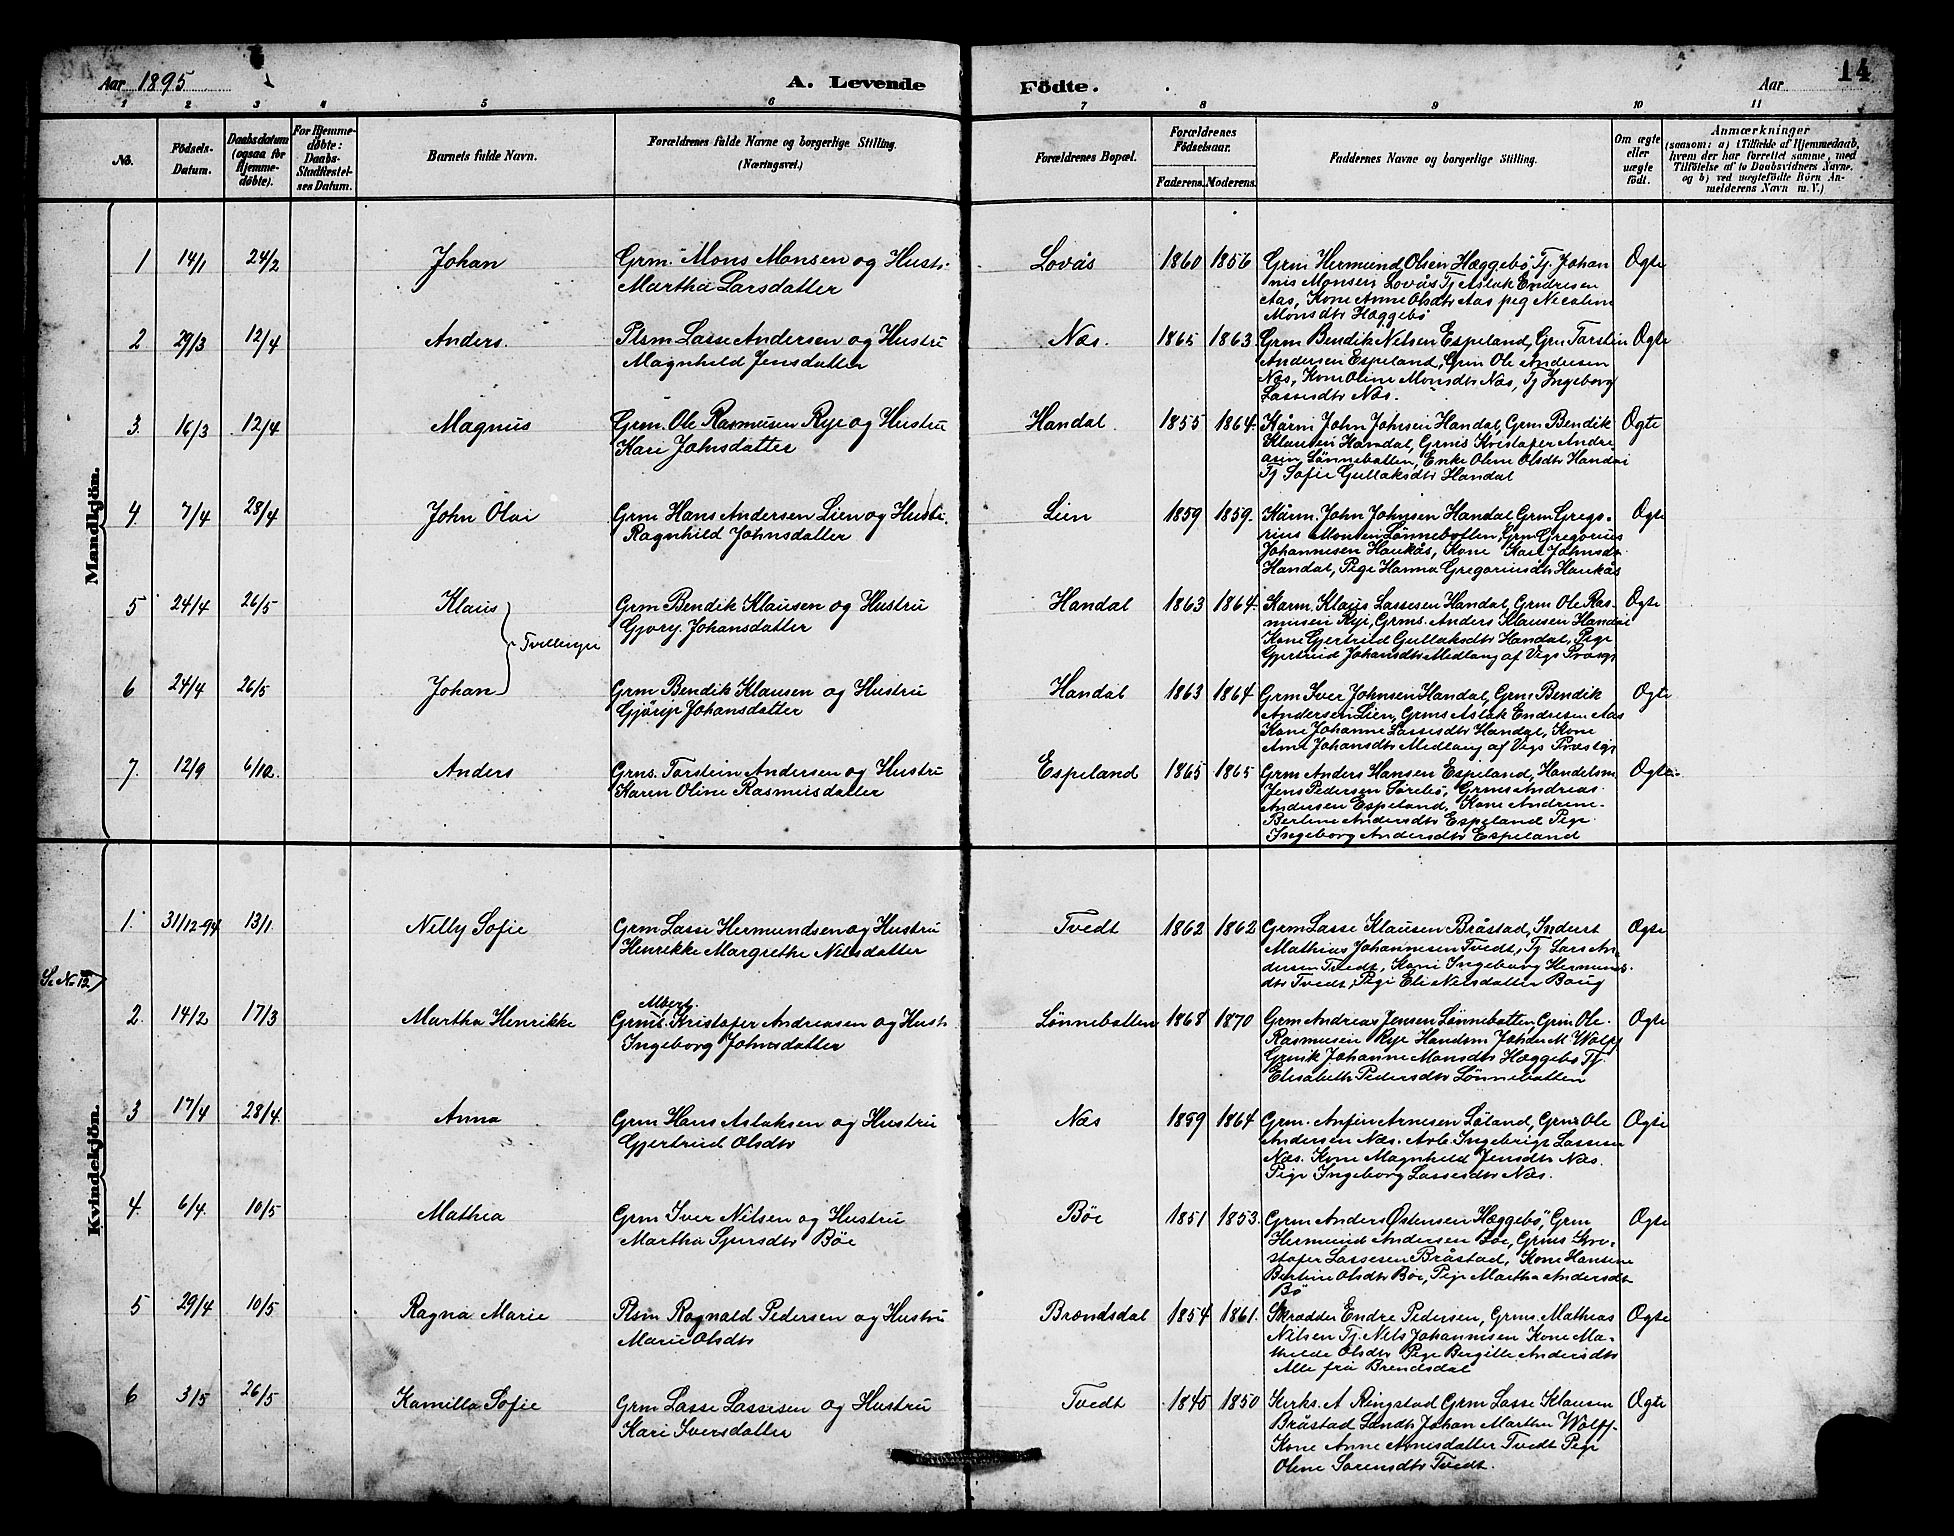 Aar 1895
A. Levende Födte.
Aar
14
1 2 3 4 5 6 7 8 9 10 11
No.
Födsels-Datum.
Daabsdatum (ogsaa for Hjemme-døbte).
For Hjemme-døbte: Daabs-Stadfæstel-ses Datum.
Barnets fulde Navn.
Forældrenes fulde Navne og borgerlige Stilling. (Næringsvei.)
Forældrenes Bopæl.
Forældrenes Födselsaar.
Faderens. Moderens.
Faddernes Navne og borgerlige Stilling.
Om ægte eller uægte födt.
Anmærkninger
(saasom: a) i Tilfælde af Hjemmedaab, hvem der har forrettet samme, med Tilföielse af to Daabsvidners Navne, og b) ved uægtefödte Börn An-melderens Navn m. V.)
Mandkjön.
1 14/1 24/2 Johan Grm. Mons Monsen og Hustr. Lovås 1860 1856 Grm Hermund Olsen Hæggebö Tj. Johan Ogte
Martha Larsdatter nis Monsen Lovås Tj Aslak Endresen
Aas, Kone Anne Olsdtr Aas peg Nicoline
Monsdtr Hæggebö
2 29/3 12/4 Anders. Plsm Lasse Andersen og Hustru Næs. 1865 1863. Grm Bendik Nilsen Espeland, Grm Torstein Ogte
Magnhild Jensdatter Andersen Espeland, Grm Ole Andersen
Næs, Kone Oline Monsdtr Næs, Tj Ingeborg
Lassesdtr Næs.
3. 16/3 12/4 Magnus Grm. Ole Rasmusen Rye og Hustru Handal. 1855 1864. Kårm John Johnsen Handal, Grm Bendik Ogte
Kari Johnsdatter Klausen Handal, Grms Kristofer Andre
asen Lønnebotten, Enke Oline Olsdtr Handal
Tj Sofie Gullaksdtr Handal
4. 7/4 28/4 John Olai Grm Hans Andersen Lien og Hustr. Lien 1859 1859. Kårm. John Johnsen Handal Grm Grego- Ogte
Ragnhild Johnsdatter rius Monsen Lönnebotten, Grm Gregorius
Johannesen Haukås, Kone Kari Johnsdr
Handal, Pige Hanna Gregoriusdtr Haukås
5 24/4 26/5 Klaus Grm Bendik Klausen og Hustru Handal 1863 1864. Karm. Klaus Lassesen Handal, Grm Ole Ras- Ogte
Tvillinger Gjory. Johansdatter musen Rye, Grms. Anders Klausen Handal
Kone Gjertrud Gullaksdtr Handal, Pige
Gjertrud Johansdtr Medlang af Vigs Præstgj
6 24/4 26/5 Johan Grm Bendik Klausen og Hustru Handal 1863 1864 Grm Iver Johnsen Handal, Grm Bendik Ogte
Johansdatter Andersen Lien, Grms Aslak Endresen Aas
Kone Johanne Lassesdtr Handal, Kone
Johansdtr Medlang af Vigs Præstgj
7. 12/9 6/10. Anders Grms. Torstein Andersen og Hustru Espeland 1865 1865 Grm Anders Hansen Espeland, Handelsm Ogte
Karen Oline Rasmusdatter Jens Pedersen Sörebö, Grms Andreas
Andersen Espeland, Kone Andrine
Berline Andersdtr Espeland Pige
Ingeborg Andersdtr Espeland
Kvindekjön.
1. 31/12-94 13/1 Nelly Sofie Grm Lasse Hermundsen og Hustru Tvedt 1862 1862 Grm Lasse Klausen Bråstad, Inderst Ogte
Henrikke Margrethe Nilsdatter Mathias Johannesen Tvedt, Tj Lars An-
dersen Tvedt, Kone Ingeborg Hermunds
dtr Tvedt, Pige Eli Nilsdatter
2. 14/2 17/3 Martha Henrikke Albert Grms. Kristofer Andreasen og Hustr. Lönnebotten 1868 1870 Grm Andreas Jensen Lönnebotten, Grm Ole Ogte
Ingeborg Johnsdatter Rasmusen Rye Johan M Wolff
Johanne Monsdtr Hæggebö Tj.
Elisabeth Pedersdtr Lönnebotten
3 17/4 28/4 Anna Grm Hans Aslaksen og Hustru Næs 1859 1864 Grm. Anfin Arnesen Löland, Grm Ole Ogte
Gjertrud Olsdtr Andersen Næs. Arb. Ingebrigt Lassesen
Næs. Kone Magnhild Jensdtr Næs.
Pige Ingeborg Lassesdtr Næs.
4. 6/4. 10/5 Mathea Grm Iver Nilsen og Hustru Böe 1851 1853. Grm Anders Östensen Hæggebö, Grm Ogte
Martha Sjursdtr Böe Hermund Andersen Böe, Grms Kri-
stofer Lassesen Bråstad, Kone Hansine
Bertine Olsdtr Böe, Pige Martha Andersdtr
Bö
5 29/4 10/5 Ragna Marie Plsm Ragnald Pedersen og Hustru Brændsdal 1854 1861. Skrædder Endre Pedersen, Grms. Mathias Ogte
Marie Olsdtr Nilsen Tj. Nils Johannesen Kone Ma-
thilde Olsdtr Pige Bergitte Andersdtr
Alle fra Brendsdal
6 3/5 26/5 Kamilla Sofie Grm Lasse Lassesen og Hustru Tvedt 1845 1850 Kirks. A Ringstad Grm Lasse Klausen Ogte
Kari Iversdatter Bråstad Landh Johan Martin Wolff.
Kone Anne Arnesdatter Tvedt Pige
Oline Sörensdtr Tvedt.